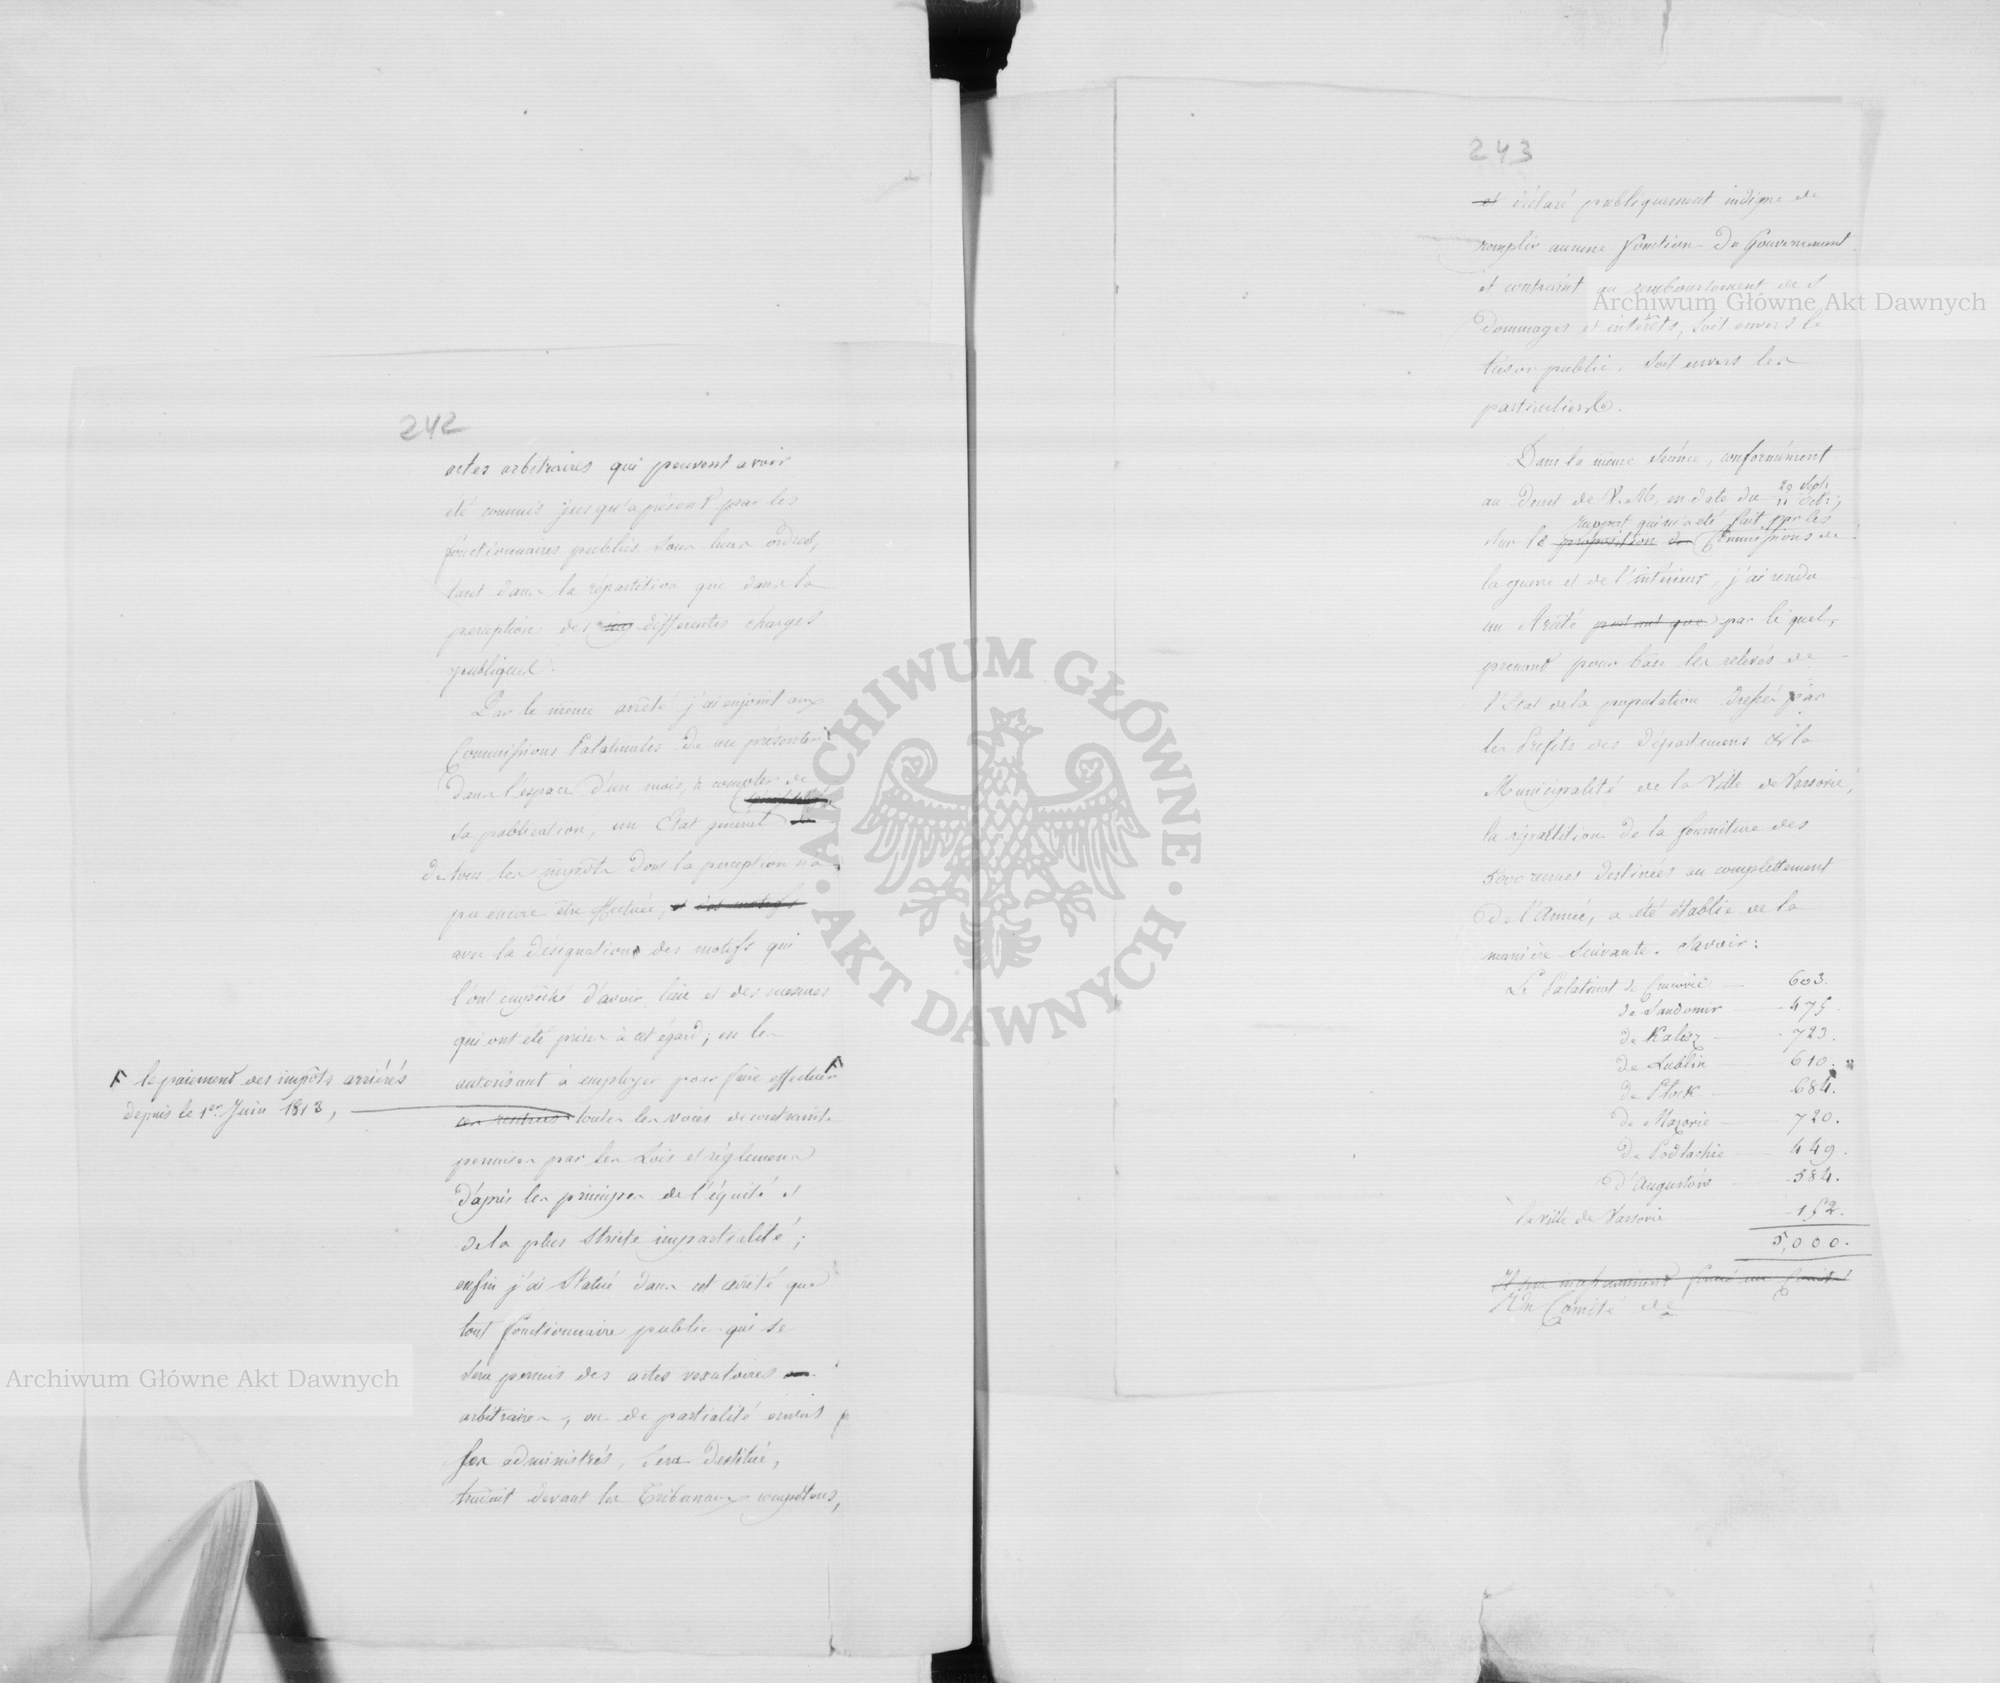 242
actes arbitraires qui peuvent avoir
été commis jusqu'à présent par les
fonctionnaires publics sous leurs ordres,
tant dans la répartition que dans la
perception des differentes charges
publiques.
Par le même arrêté j'ai enjoint aux
Commissions Palatinales de me présenter
dans l'espace d'un mois, à compter de
sa publication, un Etat general
de tous les impôts dont la perception n'a
pu encore être effectuée, et les motifs
avec la désignation des motifs qui
l'ont empêché d'avoir lieu et des mesures
qui ont été prises à cet égard; en les
autorisant à employer pour faire effectuer
F le paiement des impôts arriérés
depuis le 1er Juin 1813,
ces rentrées toutes les voies de contrainte
permises par les Lois et réglemens
d'après les principes de l'équité et
de la plus stricte impartialité;
enfin j'ai statué dans cet arrêté que
tout fonctionnaire public qui se
sera permis des actes vexatoires
arbitraires, ou de partialité envers
ses administrés, sera destitué,
traduit devant les Tribunaux compétens,
243
et déclaré publiquement indigne de
remplir aucune fonction du Gouvernement
et contraint au remboursement des
dommages et intérêts, soit envers le
trésor public, soit envers les
particuliers.
Dans la même séance, conformément
au Decret de V. M. en date du 29 Sept. 11 Oct.;
rapport qui m'a été fait par les
sur le proposition de Commissions de
la guerre et de l'intérieur, j'ai rendu
un Arrêté portant que par lequel,
prenant pour base les relevés de
l'Etat de la population dressés par
les Préfets des départemens et la
Municipalité de la Ville de Varsovie,
la répartition de la fourniture des
5000 recrues destinées au complettement
de l'Armée, a été établie de la
manière suivante. Savoir:
Le Palatinat de Cracovie — 603.
de Sandomir — 475.
de Kalisz — 723.
de Lublin — 610.
de Płock — 684.
de Mazovie — 720.
de Podlachie — 449.
d'Augustów — 584.
la ville de Varsovie — 152.
5,000.
Un Comité de
Archiwum Główne Akt Dawnych
Archiwum Główne Akt Dawnych
ARCHIWUM GŁÓWNE
AKT DAWNYCH